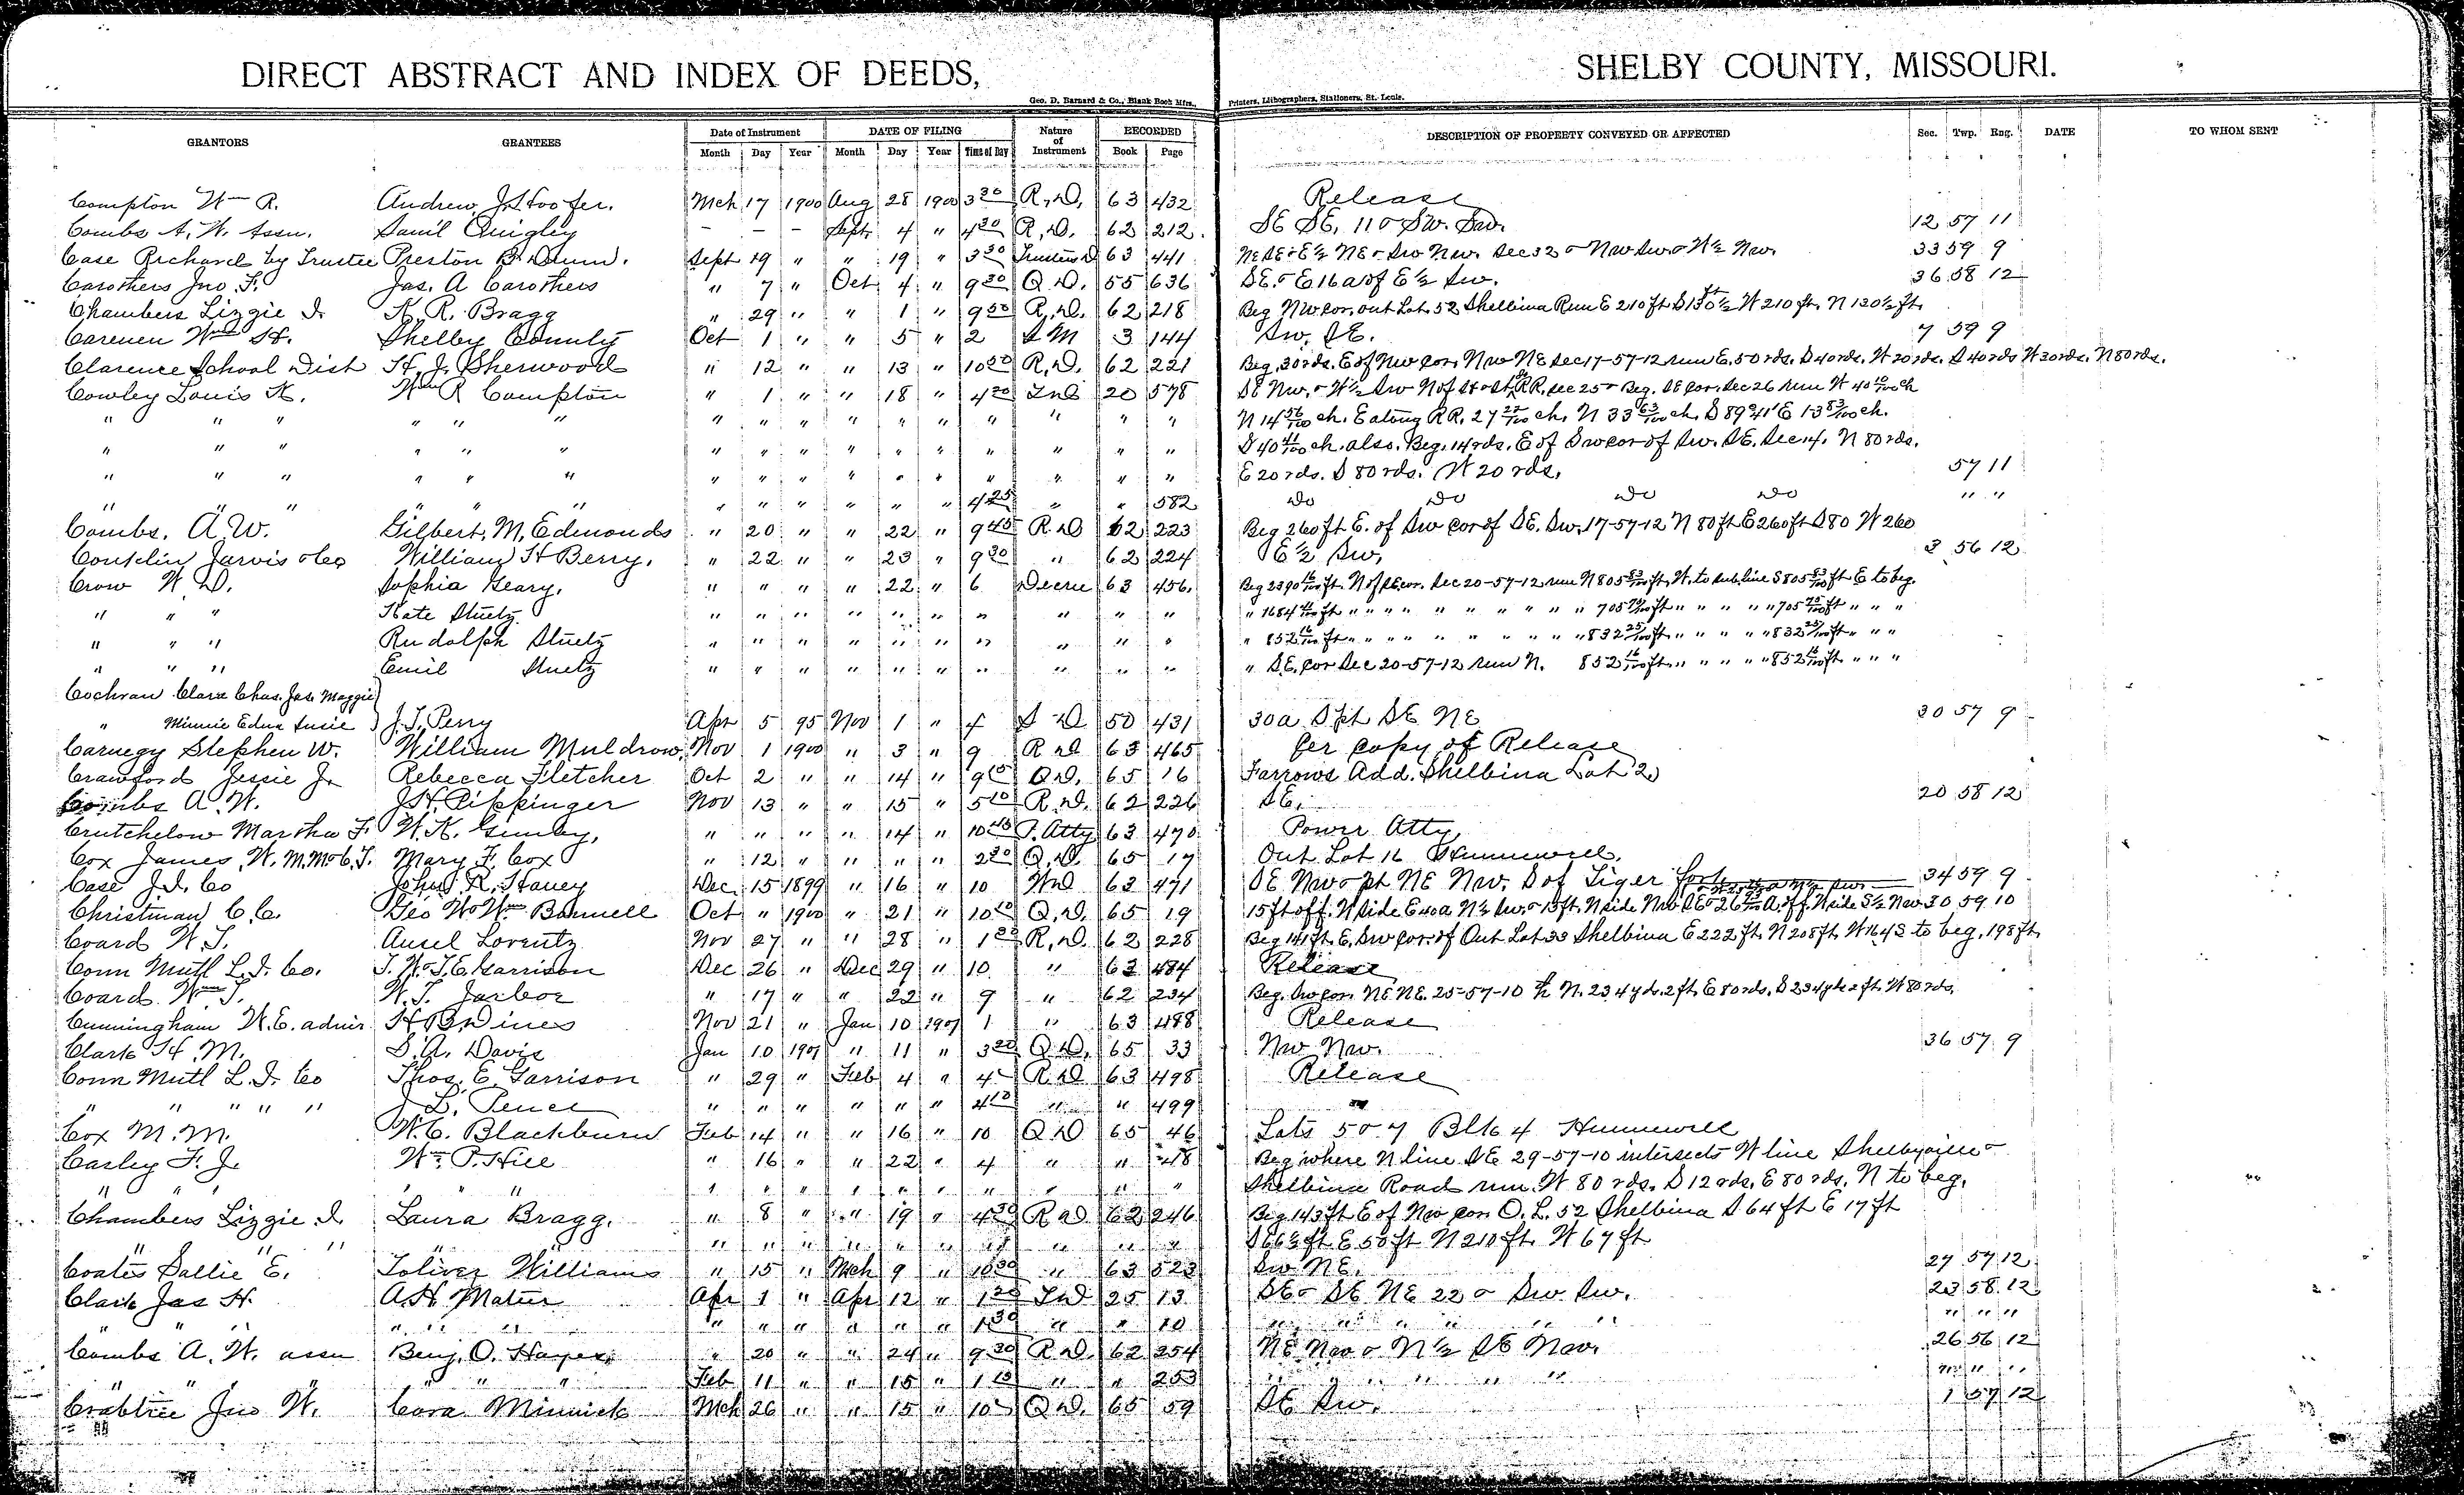 DIRECT ABSTRACT AND INDEX OF DEEDS, SHELBY COUNTY, MISSOURI.
Geo. D. Barnard & Co., Blank Book Mfrs., Printers, Lithographers, Stationers, St. Louis.
GRANTORS GRANTEES Date of Instrument DATE OF FILING Nature of Instrument RECORDED DESCRIPTION OF PROPERTY CONVEYED OR AFFECTED Sec. Twp. Rng. DATE TO WHOM SENT
Month Day Year Month Day Year Time of Day Book Page
Compton Wm R. Andrew J. Hoofer. Mch 17 1900 Aug 28 1900 3 30 R.D. 63 432 Release
Combs A. W. Assn. Saml Quigley – – – Sept 4 " 4 30 R.D. 62 212. SE SE, 11 & SW. SW. 12 57 11
Case Richard by Trustee Preston B. Dunn. Sept 19 " " 19 " 3 30 Trustees D 63 441 NE SE & E½ NE & SW NW. Sec 32 & NW SW. & W½ NW. 33 59 9
Carothers Jno. F. Jas. A Carothers " 7 " Oct 4 " 9 30 Q.D. 55 636 SE. & E 16 a of E½ SW. 36 58 12
Chambers Lizzie I. K. R. Bragg " 29 " " 1 " 9 50 R.D. 62 218 Beg NW cor. out Lot 52 Shelbina Run E 210 ft S 130½ ft W 210 ft. N 130½ ft.
Wm H. Shelby County Oct 1 " " 5 " 2 S M 3 144 SW. SE. 7 59 9
Clarence School Dist H. J. Sherwood " 12 " " 13 " 10 50 R.D. 62 221 Beg. 30 rds. E of NW cor. NW NE Sec 17-57-12 run E. 50 rds. S 40 rds. W 20 rds. S 40 rds W 30 rds. N 80 rds.
Cowley Louis K. Wm R Compton " 1 " " 18 " 4 20 Tr D 20 578 SE NW. & W½ SW N of H & St Jo RR. Sec 25 & Beg. SE cor. Sec 26 run W 40 10/100 ch
" " " " " " " " " " " " " " " " " N 14 56/100 ch. E along RR. 27 25/100 ch. N 33 63/100 ch. S 89°41' E 13 83/100 ch.
" " " " " " " " " " " " " " " " " S 40 41/100 ch. also. Beg. 14 rds. E of SW cor of SW. SE. Sec 14. N 80 rds.
" " " " " " " " " " " " " " " " " E 20 rds. S 80 rds. W 20 rds. 57 11
" " " " " " " " " " " " " 4 25 " " 582 Do Do Do Do " "
Combs. A. W. Gilbert. M. Edmonds " 20 " " 22 " 9 45 R.D 62 223 Beg 260 ft E. of SW cor of SE. SW. 17-57-12 N 80 ft E 260 ft S 80 W 260
Conklin Jarvis & Co William H Berry. " 22 " " 23 " 9 30 " 62 224 E½ SW. 3 56 12
Crow W. D. Sophia Geary. " " " " 22 " 6 Decree 63 456. Beg 2390 16/100 ft. N of SE cor. Sec 20-57-12 run N 805 83/100 ft. W. to sub. line S 805 83/100 ft E to beg.
" " " Kate Stuetz " " " " " " " " " " " 1684 41/100 ft " " " " " " " " " 705 75/100 ft " " " " " 705 75/100 ft " " "
" " " Rudolph Stuetz " " " " " " " " " " " 852 16/100 ft " " " " " " " " " 832 25/100 ft " " " " " 832 25/100 ft " " "
" " " Emil Stuetz " " " " " " " " " " " SE. cor Sec 20-57-12 run N. 852 16/100 ft " " " " " 852 16/100 ft " " "
Cochran Clara Chas. Jas. Maggie
" Minnie Edna Susie J. T. Perry Apr 5 95 Nov 1 " 4 S D 50 431 30 a S pt SE NE 30 57 9
Carnegy Stephen W. William Muldrow, Nov 1 1900 " 3 " 9 R D 63 465 Cer copy of Release
Crawford Jessie J. Rebecca Fletcher Oct 2 " " 14 " 9 15 Q.D. 65 16 Farrows Add. Shelbina Lot 2
Combs A. W. J H Pippinger Nov 13 " " 15 " 5 10 R.D. 62 226 SE. 20 58 12
Crutchelow Martha F. W. K. " " " " 14 " 10 45 P. Atty 63 470 Power Atty
Cox James, W. M. M & C. T. Mary F. Cox " 12 " " " " 2 30 Q.D. 65 17 Out Lot 16 Hunnewell.
Case J.I. Co John R. Haney Dec 15 1899 " 16 " 10 W D 63 471 SE NW & pt NE NW. S of Tiger fork 34 59 9
Christman C. C. Geo W & Wm Bonnell Oct " 1900 " 21 " 10 10 Q.D. 65 19 15 ft off. N side E 40 a N½ SW. & 15 ft. N side NW SE & 26 A. off. N side S½ NW 30 59 10
Coard W. T. Ansel Lorentz Nov 27 " " 28 " 1 20 R.D. 62 228 Beg 141 ft. E. SW cor. of Out Lot 33 Shelbina E 222 ft. N 208 ft. W 164 S to beg. 198 ft.
Conn Mutl L. I. Co. T. W & T. E. Garrison Dec 26 " Dec 29 " 10 " 63 484 Release
Coard Wm T. W. T. Jarboe " 17 " " 22 " 9 " 62 234 Beg. SW cor. NE NE. 25-57-10 th N. 234 yds. 2 ft. E 80 rds. S 234 yds 2 ft. W 80 rds.
Cunningham W. E. admr H B Dines Nov 21 " Jan 10 1901 1 " 63 488 Release
Clark H. M. S. A. Davis Jan 10 1901 " 11 " 3 20 Q.D. 65 33 NW NW. 36 57 9
Conn Mutl L. I. Co Thos. E. Garrison " 29 " Feb 4 " 4 R D 63 498 Release
" " " " " J. L. Pence " " " " " " 4 10 " " 499 "
Cox M. M. W. C. Blackburn Feb 14 " " 16 " 10 Q D 65 46 Lots 5 & 7 Blk 4 Hunnewell
Casley F. J. Wm P. Hill " 16 " " 22 " 4 " " 48 Beg where N line SE 29-57-10 intersects W line Shelbyville &
" " " " " " " " " " " " " " " " Shelbina Road run W 80 rds. S 12 rds. E 80 rds. N to beg.
Chambers Lizzie I. Laura Bragg. " 8 " " 19 " 4 30 R D 62 246 Beg 143 ft E of NW cor. O. L. 52 Shelbina S 64 ft E 17 ft
" " " " " " " " " " " " " S 66½ ft E 50 ft N 210 ft. W 67 ft
Coates Sallie E. Toliver Williams " 15 " Mch 9 " 10 30 " 63 523 SW NE. 27 57 12
Clark Jas H. A. H. Apr 1 " Apr 12 " 1 20 T D 25 13 SE & SE NE 22 & SW. SW. 23 58 12
" " " " " " " " " " " " 1 30 " " 10 " " " " " " " " "
Combs A. W. assn Benj. O. Hayes " 20 " " 24 " 9 30 R D 62 254 NE NW & N½ SE NW. 26 56 12
" " " " " Feb 11 " " 15 " 1 15 " " 253 " " " " " " "
Crabtree Jno W. Cora Minnick Mch 26 " " 15 " 10 Q D. 65 59 SE SW. 1 57 12